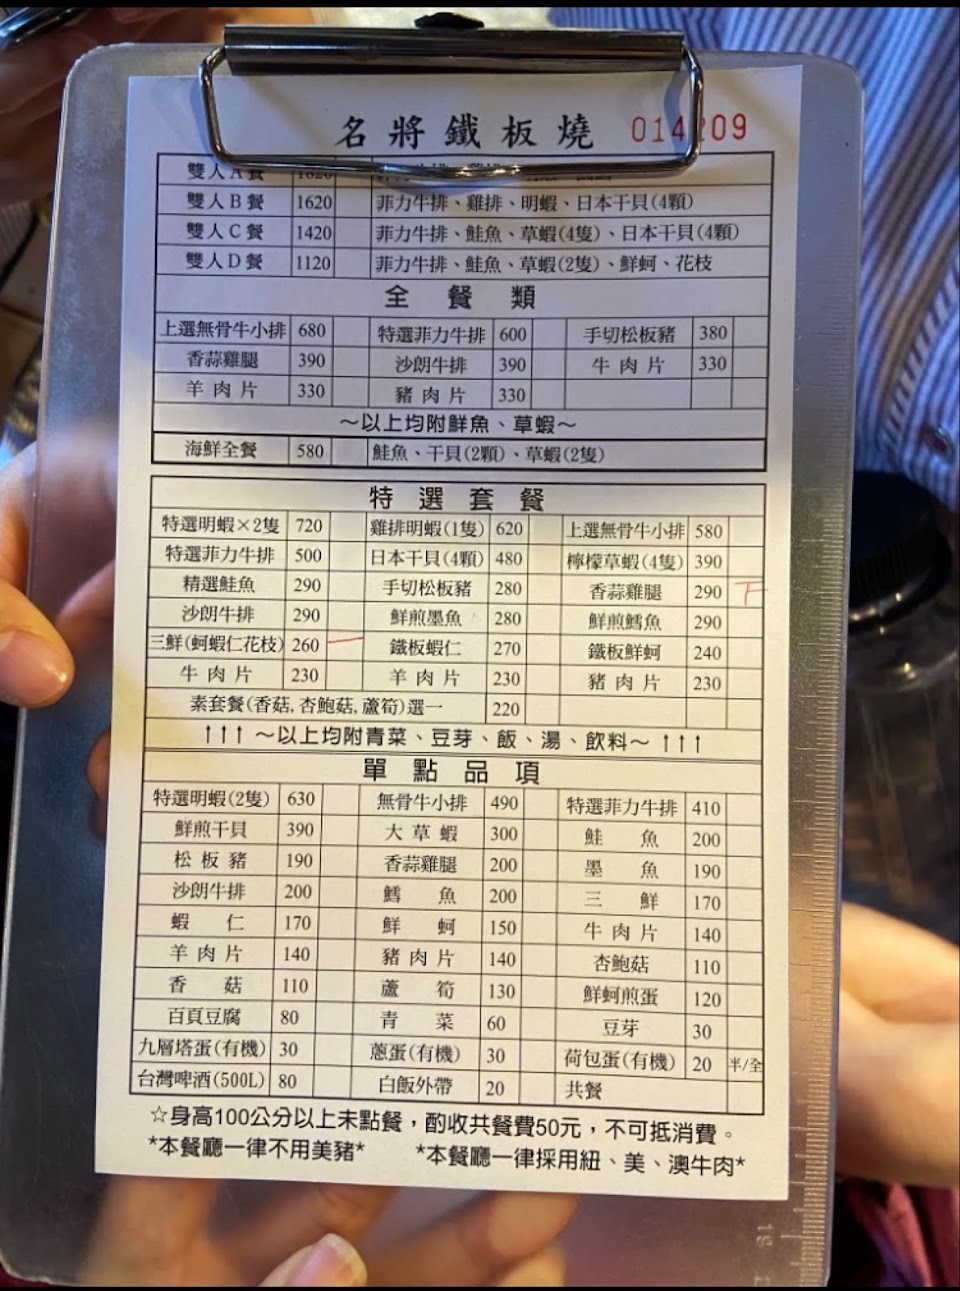 名將鐵板燒 014209
雙人A餐 1820
雙人B餐 1620 菲力牛排、雞排、明蝦、日本干貝(4顆)
雙人C餐 1420 菲力牛排、鮭魚、草蝦(4隻)、日本干貝(4顆)
雙人D餐 1120 菲力牛排、鮭魚、草蝦(2隻)、鮮蚵、花枝
全餐類
上選無骨牛小排 680 特選菲力牛排 600 手切松板豬 380
香蒜雞腿 390 沙朗牛排 390 牛肉片 330
羊肉片 330 豬肉片 330
～以上均附鮮魚、草蝦～
海鮮全餐 580 鮭魚、干貝(2顆)、草蝦(2隻)
特選套餐
特選明蝦×2隻 720 雞排明蝦(1隻) 620 上選無骨牛小排 580
特選菲力牛排 500 日本干貝(4顆) 480 檸檬草蝦(4隻) 390
精選鮭魚 290 手切松板豬 280 香蒜雞腿 290
沙朗牛排 290 鮮煎墨魚 280 鮮煎鱈魚 290
三鮮(蚵蝦仁花枝) 260 鐵板蝦仁 270 鐵板鮮蚵 240
牛肉片 230 羊肉片 230 豬肉片 230
素套餐(香菇,杏鮑菇,蘆筍)選一 220
↑↑↑～以上均附青菜、豆芽、飯、湯、飲料～↑↑↑
單點品項
特選明蝦(2隻) 630 無骨牛小排 490 特選菲力牛排 410
鮮煎干貝 390 大草蝦 300 鮭魚 200
松板豬 190 香蒜雞腿 200 墨魚 190
沙朗牛排 200 鱈魚 200 三鮮 170
蝦仁 170 鮮蚵 150 牛肉片 140
羊肉片 140 豬肉片 140 杏鮑菇 110
香菇 110 蘆筍 130 鮮蚵煎蛋 120
百頁豆腐 80 青菜 60 豆芽 30
九層塔蛋(有機) 30 蔥蛋(有機) 30 荷包蛋(有機) 20 半/全
台灣啤酒(500L) 80 白飯外帶 20 共餐
☆身高100公分以上未點餐，酌收共餐費50元，不可抵消費。
*本餐廳一律不用美豬* *本餐廳一律採用紐、美、澳牛肉*